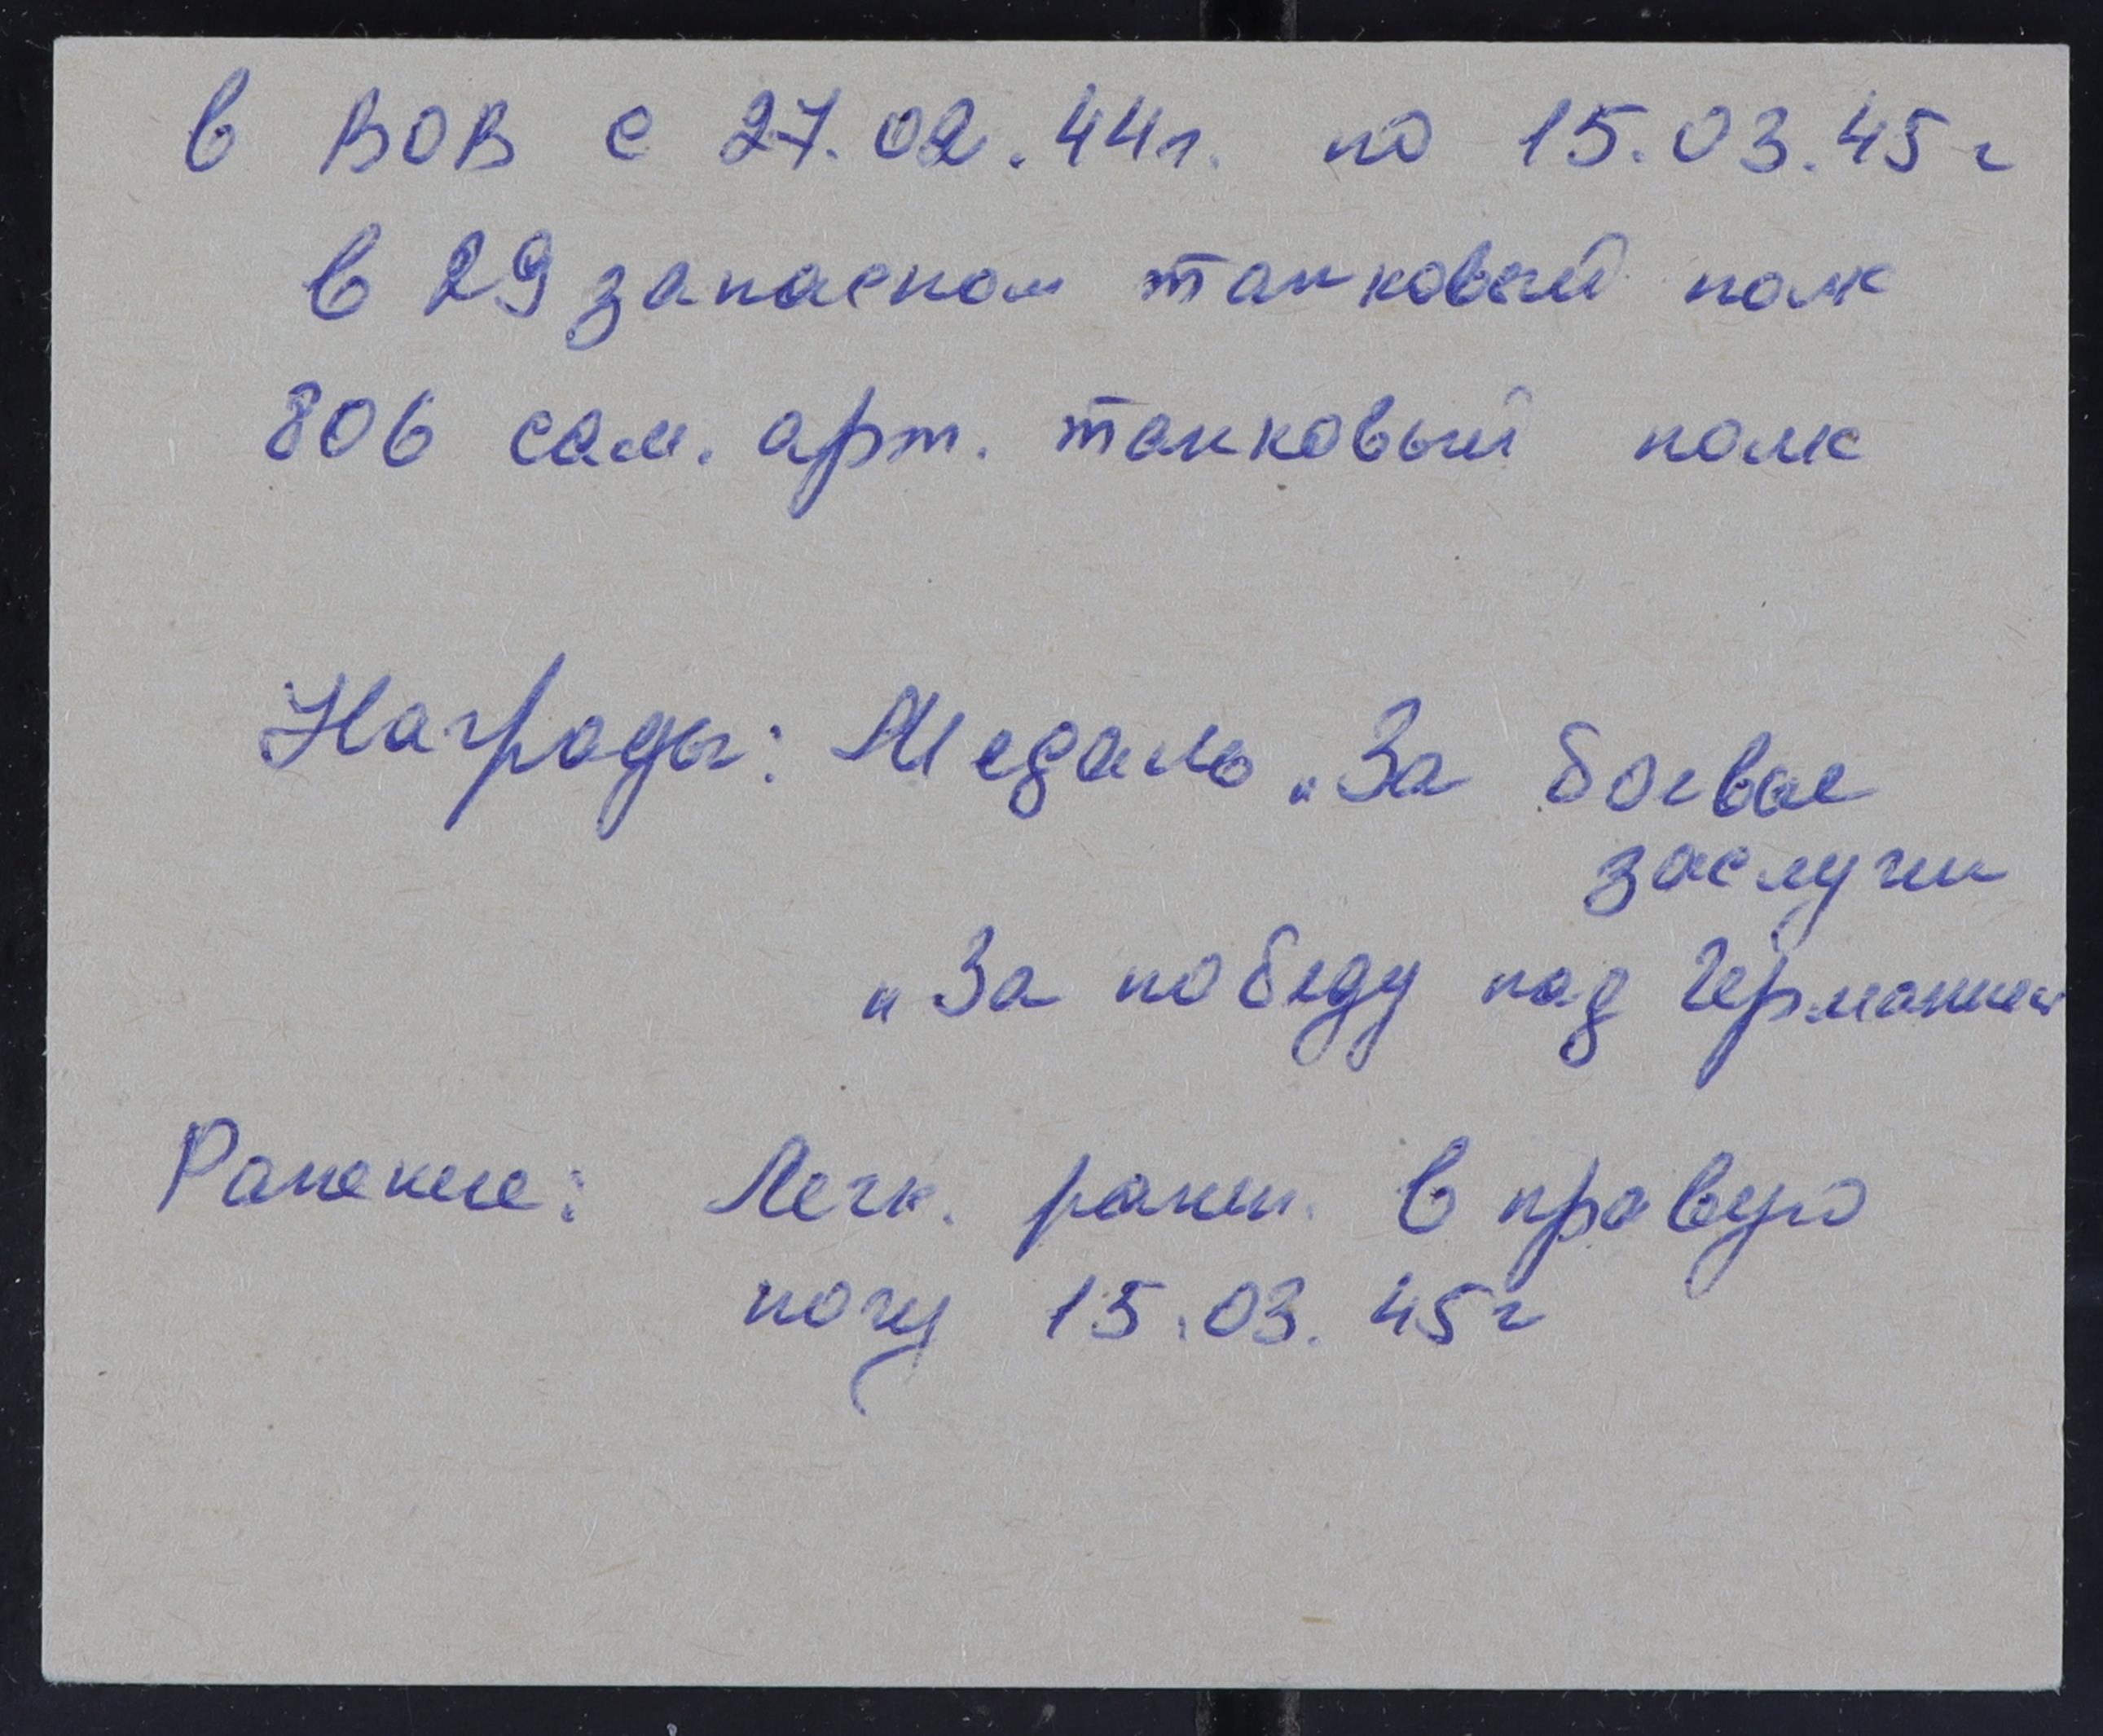 в ВОВ с 27.02.44г. по 15.03.45г
в 29 запасном танковый полк
806 сам. арт. танковый полк
Награды: Медаль „За боевые
заслуги
„За победу над Германией
Ранение: Легк. ранен. в правую
ногу 15.03.45г